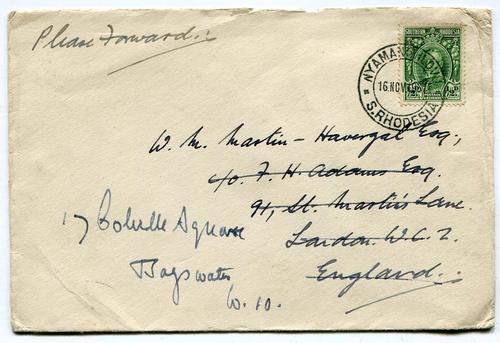 Please Forward.:
SOUTHERN RHODESIA
½D. ½D.
16 NOV
S. RHODESIA
W. M. Martin - Havergal Esq.,
c/o. F. H. Adams Esq.
91, St. Martin's Lane.
London. W.C.2.
England.:
17 Square
Bayswater
W. 10.